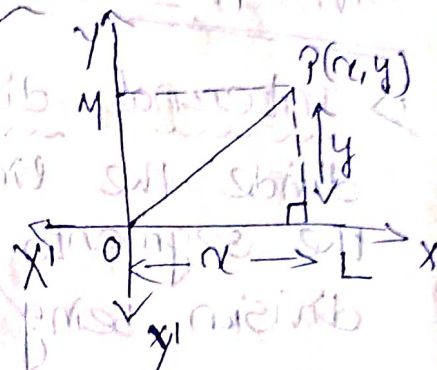 Y
P(x,y)
M
y
X'
O
x
L
X
y'